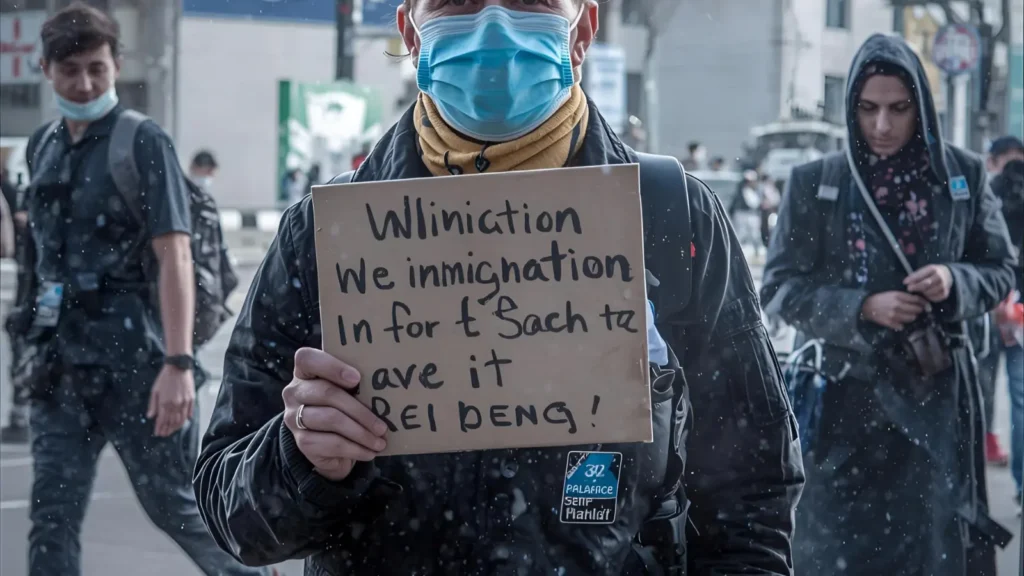 Wliniction
We inmignation
In for t Sach ta
ave it
REI DENG!
32
PALAFICE